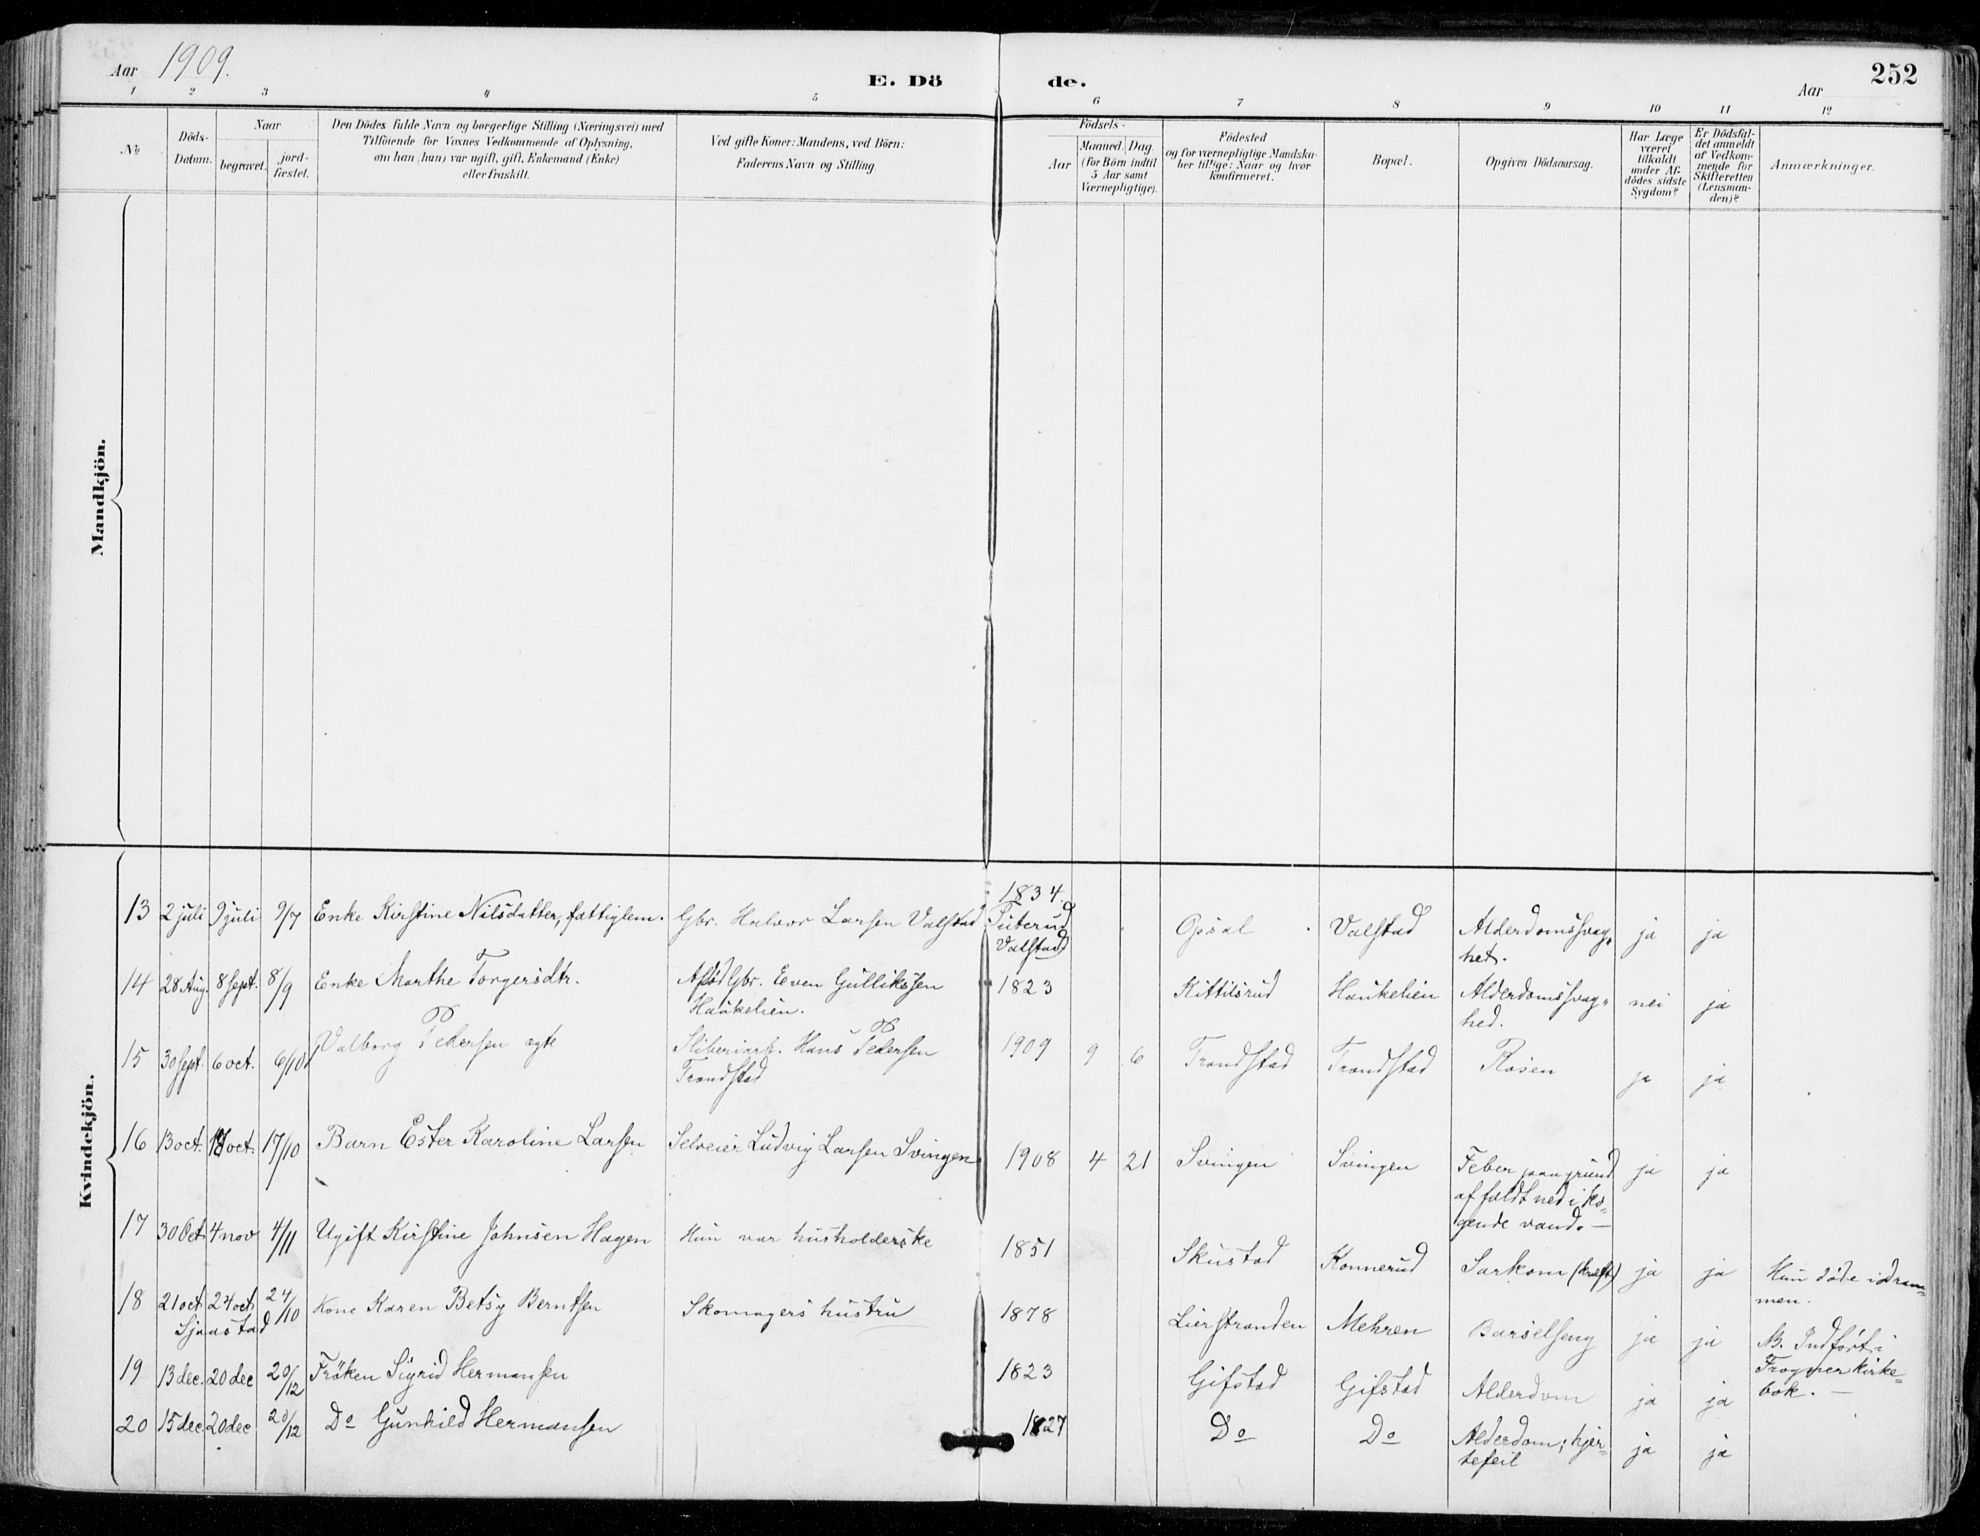 Aar 1909. E. Dö de. Aar 252
1 2 3 4 5 6 7 8 9 10 11 12
No
Döds-
Datum.
Naar
begravet.
jord-
fæstet.
Den Dödes fulde Navn og borgerlige Stilling (Næringsvei) med
Tilföiende for Voxnes Vedkommende af Oplysning,
om han (hun) var ugift, gift, Enkemand (Enke)
eller fraskilt.
Ved gifte Koner: Mandens, ved Börn:
Faderens Navn og Stilling.
Födsels-
Aar
Maaned. Dag.
(for Börn indtil
5 Aar samt
Værnepligtige).
Födested
og for værnepligtige Mandska-
ber tillige: Naar og hvor
konfirmeret.
Bopæl.
Opgiven Dödsaarsag.
Har Læge
været
tilkaldt
under Af-
dödes sidste
Sygdom?
Er Dödsfal-
det anmeldt
af Vedkom-
mende for
Skifteretten
(Lensman-
den)?
Anmærkninger.
Mandkjön.
Kvindekjön.
13 2 juli 9 juli 9/7 Enke Kirstine Nilsdatter, fattiglem. Gbr. Halvor Larsen Valstad 1834. Opsal Valstad Alderdomssvag-
Tuterud
Valstad
het. ja ja
14 28 Aug. 8 Sept. 8/9 Enke Marthe Torgersdtr. Afdød Gbr. Even Gulliksen 1823 Kittilsrud Haukelien Alderdomssvag-
Haukelien. hed. nei ja
15 30 Sept. 6 oct. 6/10 Valborg Pedersen ægte Sliberiarb. Hans Pedersen 1909 9 6 Trandstad Trandstad Rosen ja ja
Trandstad
16 13 oct. 17 oct. 17/10 Barn Ester Karoline Larsen Selveier Ludvig Larsen Svingen 1908 4 21 Svingen Svingen Feber paa grund ja ja
af faldt ned i ko-
gende vand. —
17 30 Oct. 4 nov 4/11 Ugift Kirstine Johnsen Hagen Hun var husholderske 1851 Skustad Konnerud Sarkom (kræft) ja ja Hun døde i Dram-
men.
18 21 oct 24 oct 24/10 Kone Karen Betsy Berntsen Skomagers hustru 1878 Lierstranden Mehren Barselseng ja ja NB. Indført i
Sjaastad
Frogner kirke-
bok. —
19 13 dec. 20 dec 20/12 Frøken Sigrid Hermansen 1823 Gifstad Gifstad Alderdom ja ja
20 15 dec. 20 dec 20/12 Do Gunhild Hermansen 1827 Do Do Alderdom; hjer-
tefeil ja ja